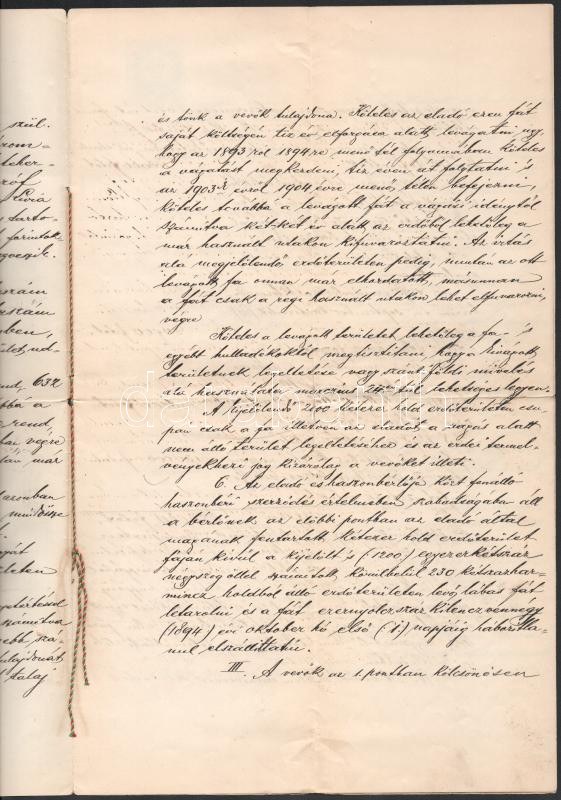 és tönk a vevők tulajdona. Köteles az eladó ezen fát
saját költségén tiz év elforgása alatt levágatni ugy
hogy az 1893 ról 1894 re menő tél folyamában köteles
a vágatást megkezdeni, tiz éven át folytatni és
az 1903ik évről 1904 évre menő telen befejezni,
köteles továbbá a levágott fát a vágási idénytől
számitva két-két év alatt az erdőből lehetőleg a
már használt utakon kifuvaroztatni. Az irtás
alá megjelölendő erdőterületen pedig, miután az ott
levágott fa onnan már elhordatott, másunnan
a fát csak a régi használt utakon lehet elfuvarozni,
végre
Köteles a levágott területet lehetőleg a fa- és
egyébb hulladékoktól megtisztitani, hogy a kivágott
területnek legeltetése vagy szántóföldi mivelés
alá használata marczius 24től lehetséges legyen.
A kijelölendő 200 kétszáz hold erdőterületen csu-
pán csak a fa illetvén az eladót, a vágás alatt
nem álló terület legeltetéséhez és az erdei termel-
vényekhezi jog kizárólag a vevőket illeti.
6. Az eladó és haszonbérlője közt fenálló
haszonbéri szerződés értelmében szabadságában áll
a bérlőnek az előbbi pontban az eladó által
magának fentartott kétszáz hold erdőterület
fáján kivül a kijelölt s (1200) egyezerkétszáz
négyszögöllel számitott körülbelül 230 kétszázhar-
mincz holdból álló erdőterületen levő lábas fát
letarolni és a fát ezernyolczszázkilenczvennégy
(1894) évi október hó első (1.) napjáig háborítla-
nul elszállittatni.
III. A vevők az 1. pontban kölcsönösen
szül.
lehet-
darto-
forintok-
szám
ben,
632
bbá a
rend,
végre
már
azonban
területen
számitva
tulajdonát,
talaj
darabanth